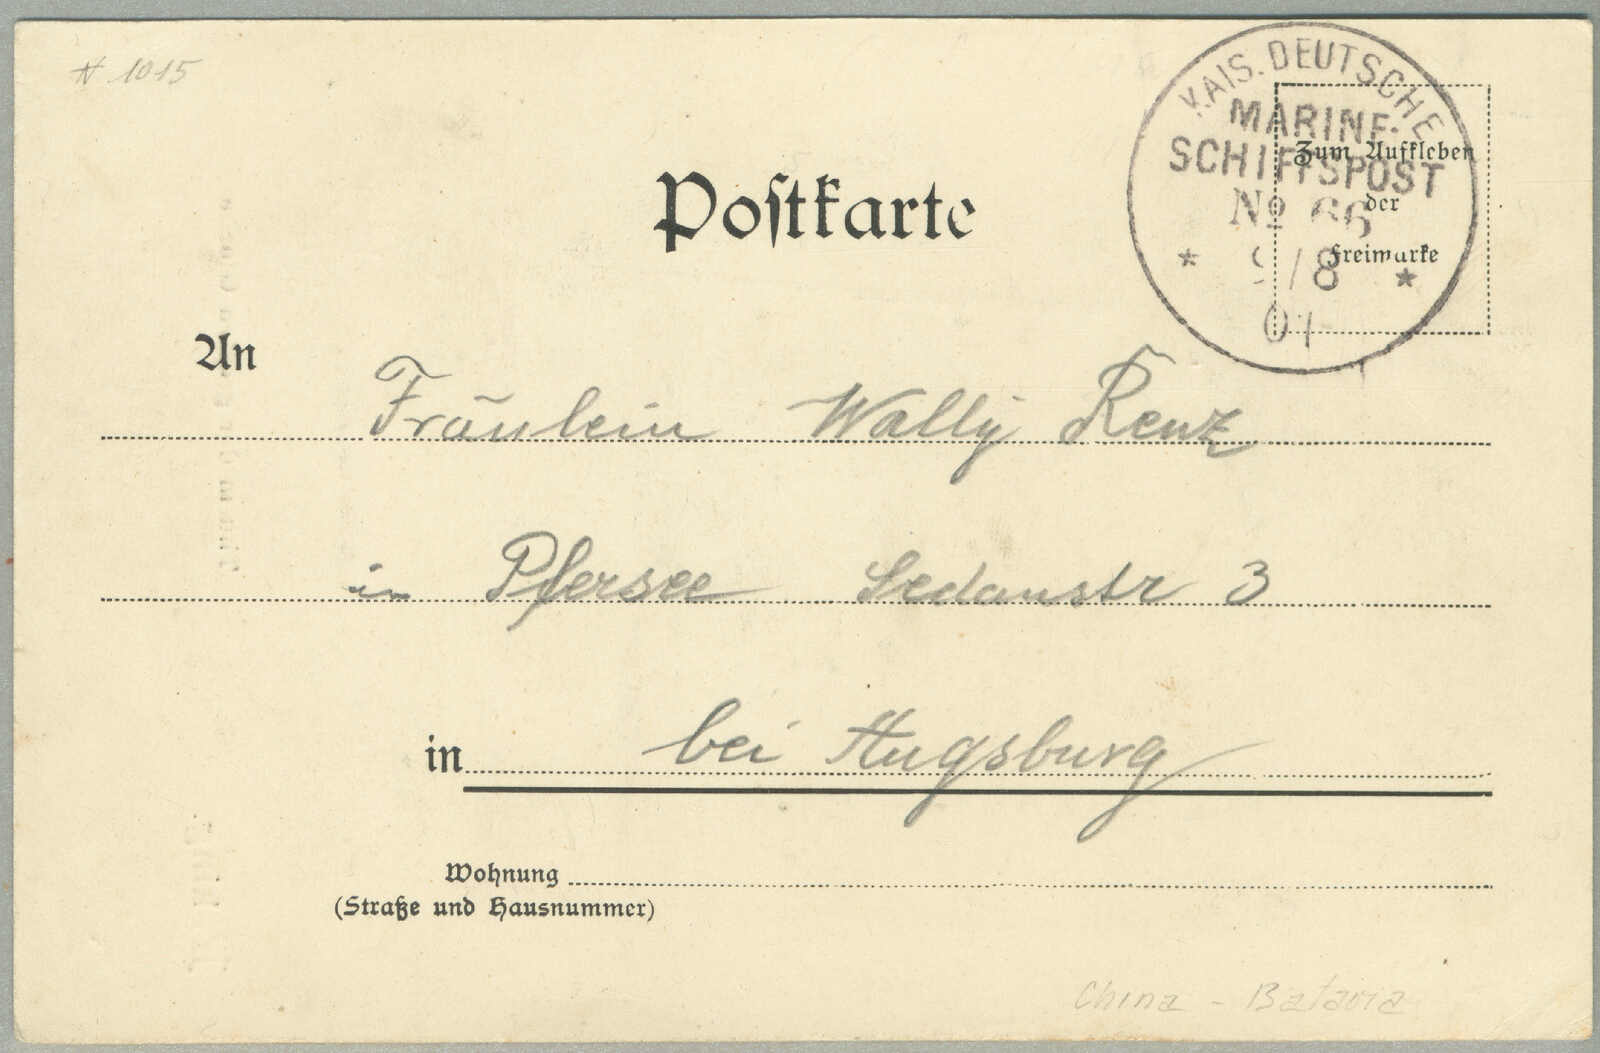 # 1015
KAIS. DEUTSCHE
MARINE-
SCHIFFSPOST
No 66
9/8
01
Zum Aufkleben
der
Freimarke
Postkarte
An
Fräulein Wally Renz
in Pfersee Sedanstr 3
in bei Augsburg
Wohnung
(Straße und Hausnummer)
China - Batavia